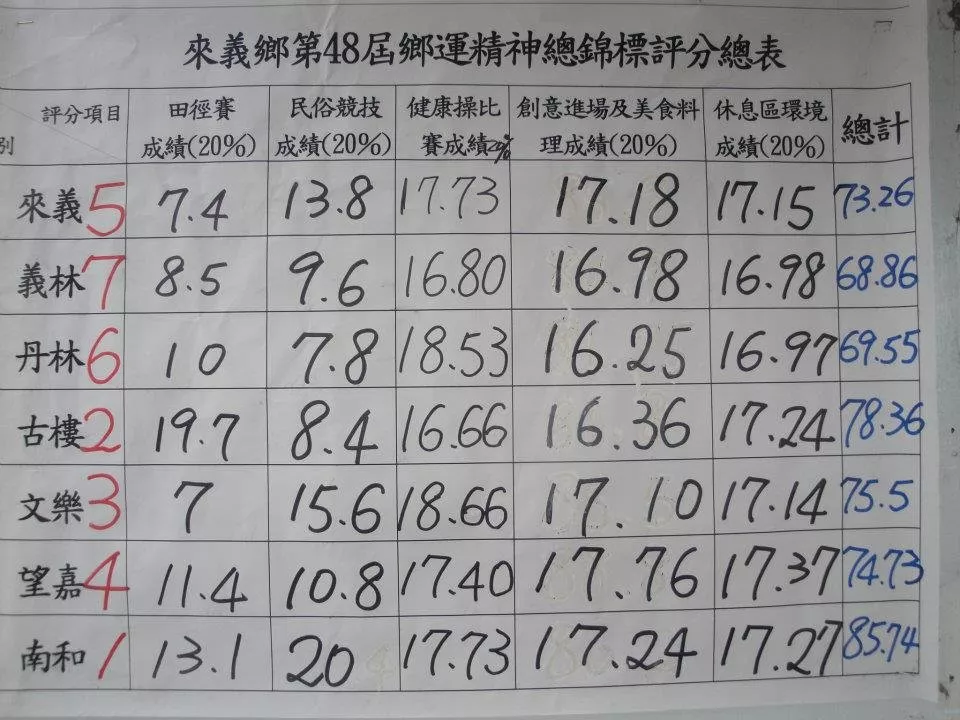 來義鄉第48屆鄉運精神總錦標評分總表
評分項目 田徑賽 民俗競技 健康操比 創意進場及美食料 休息區環境 總計
別 成績(20%) 成績(20%) 賽成績20% 理成績(20%) 成績(20%)
來義 5 7.4 13.8 17.73 17.18 17.15 73.26
義林 7 8.5 9.6 16.80 16.98 16.98 68.86
丹林 6 10 7.8 18.53 16.25 16.97 69.55
古樓 2 19.7 8.4 16.66 16.36 17.24 78.36
文樂 3 7 15.6 18.66 17.10 17.14 75.5
望嘉 4 11.4 10.8 17.40 17.76 17.37 74.73
南和 1 13.1 20 17.73 17.24 17.27 85.74